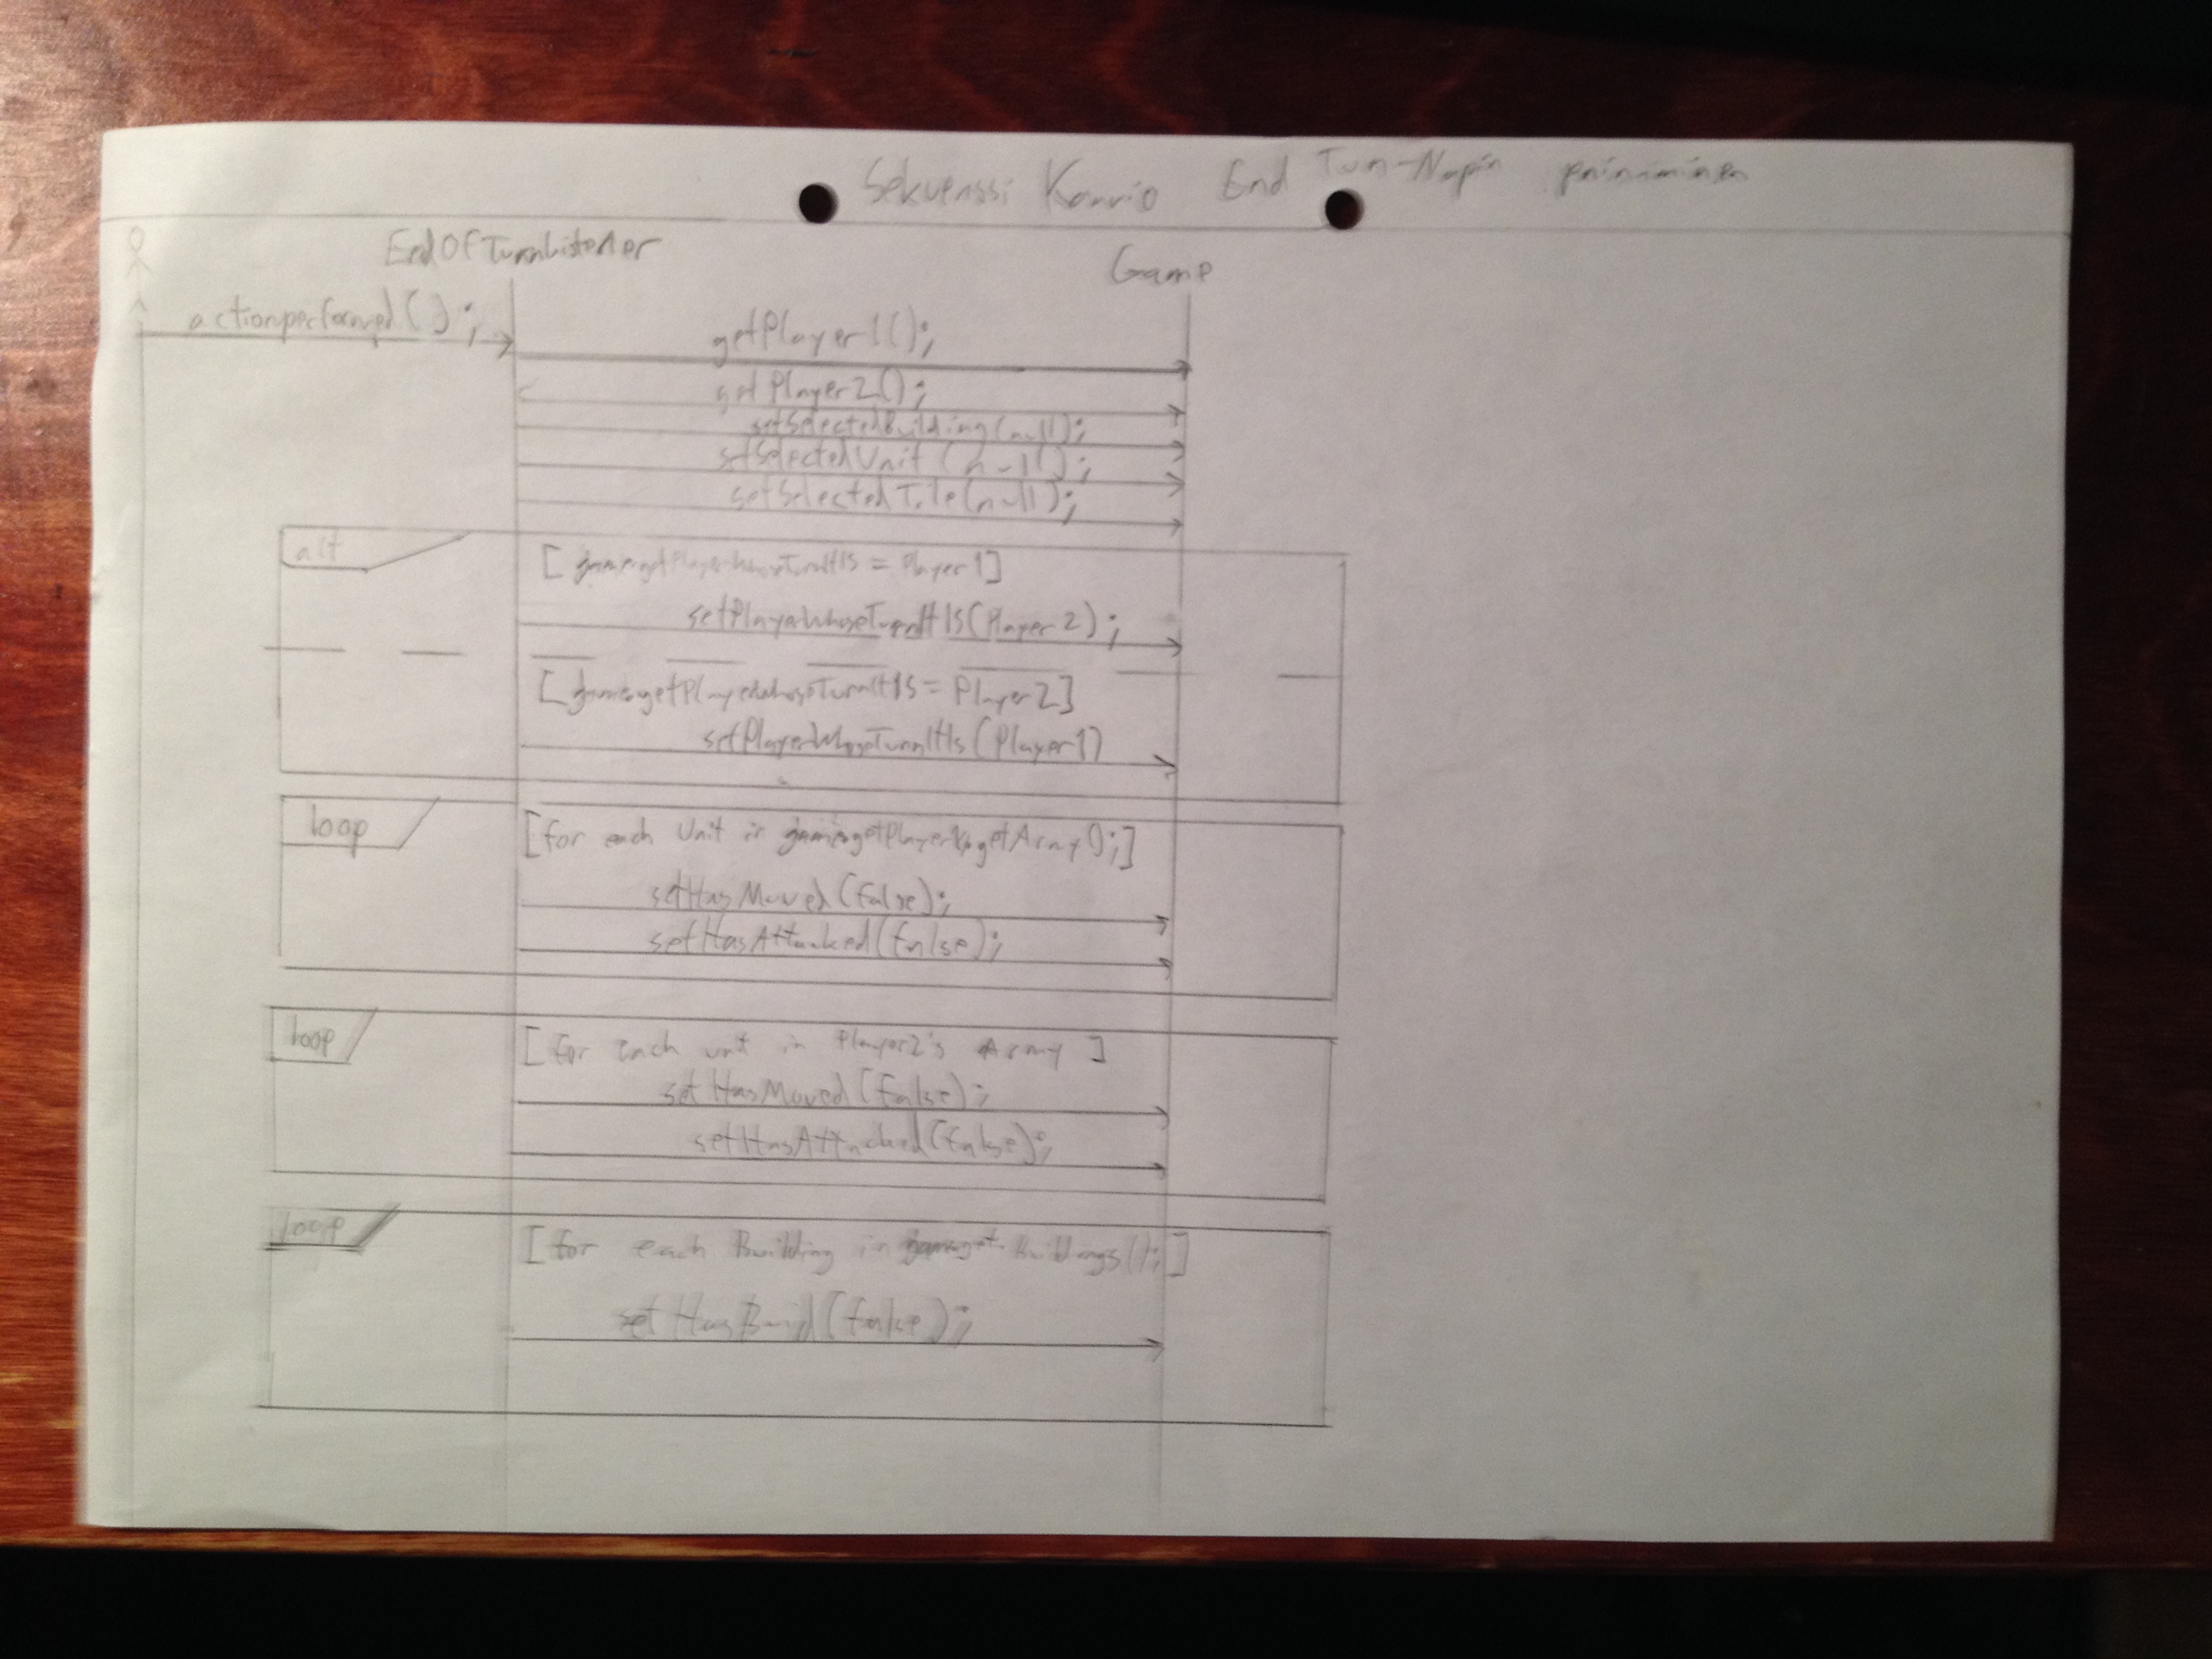 Sekvenssi Kaavio End Turn-Napin painaminen
EndOfTurnListener Game
actionperformed();
getPlayer1();
getPlayer2();
setSelectedBuilding(null);
setSelectedUnit(null);
setSelectedTile(null);
alt
[game.getPlayerWhoseTurnItIs = Player1]
setPlayerWhoseTurnItIs(Player2);
[game.getPlayerWhoseTurnItIs = Player2]
setPlayerWhoseTurnItIs(Player1)
loop
[for each Unit in game.getPlayer1.getArray();]
setHasMoved(false);
setHasAttacked(false);
loop
[for each unit in Player2's Array]
setHasMoved(false);
setHasAttacked(false);
loop
[for each Building in]
setHasBuild(false);